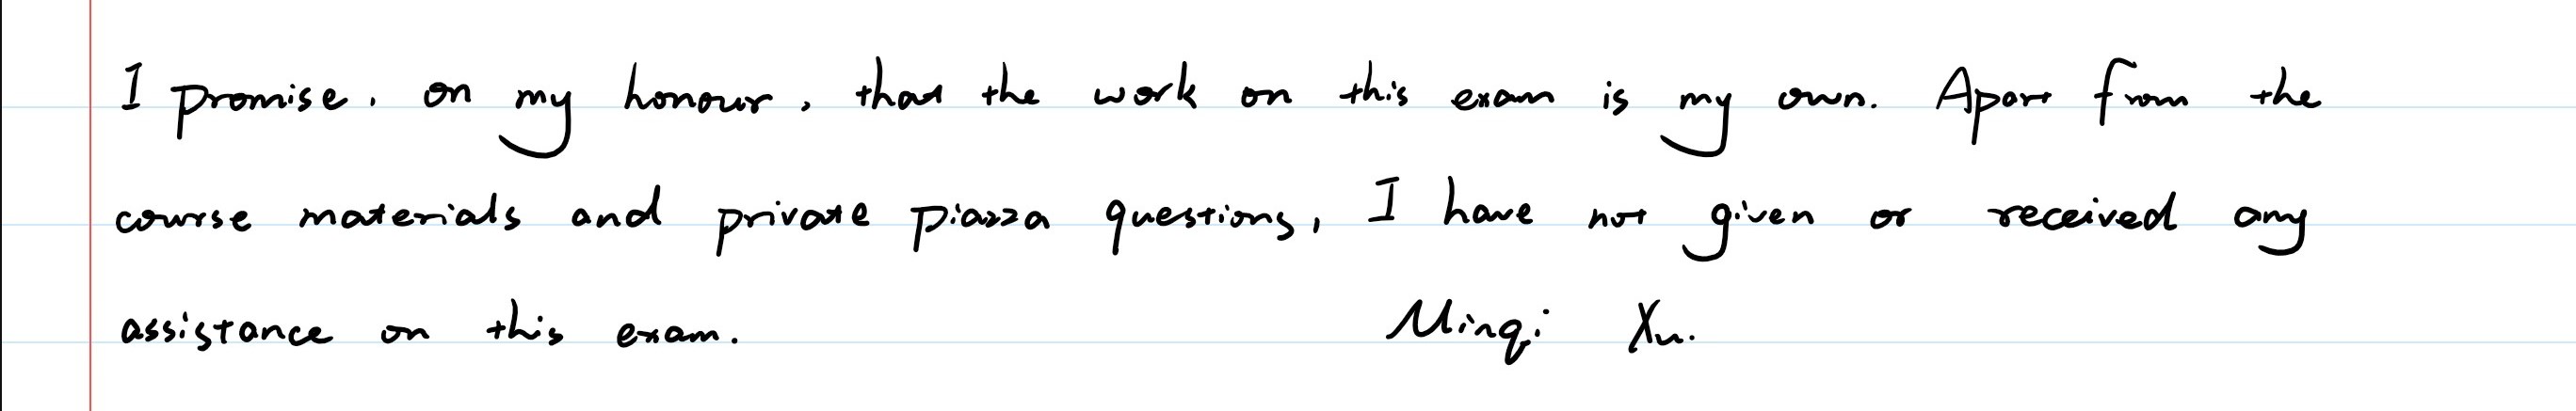 I promise, on my honour, that the work on this exam is my own. Apart from the
course materials and private piazza questions, I have not given or received any
assistance on this exam. Minqi Xu.